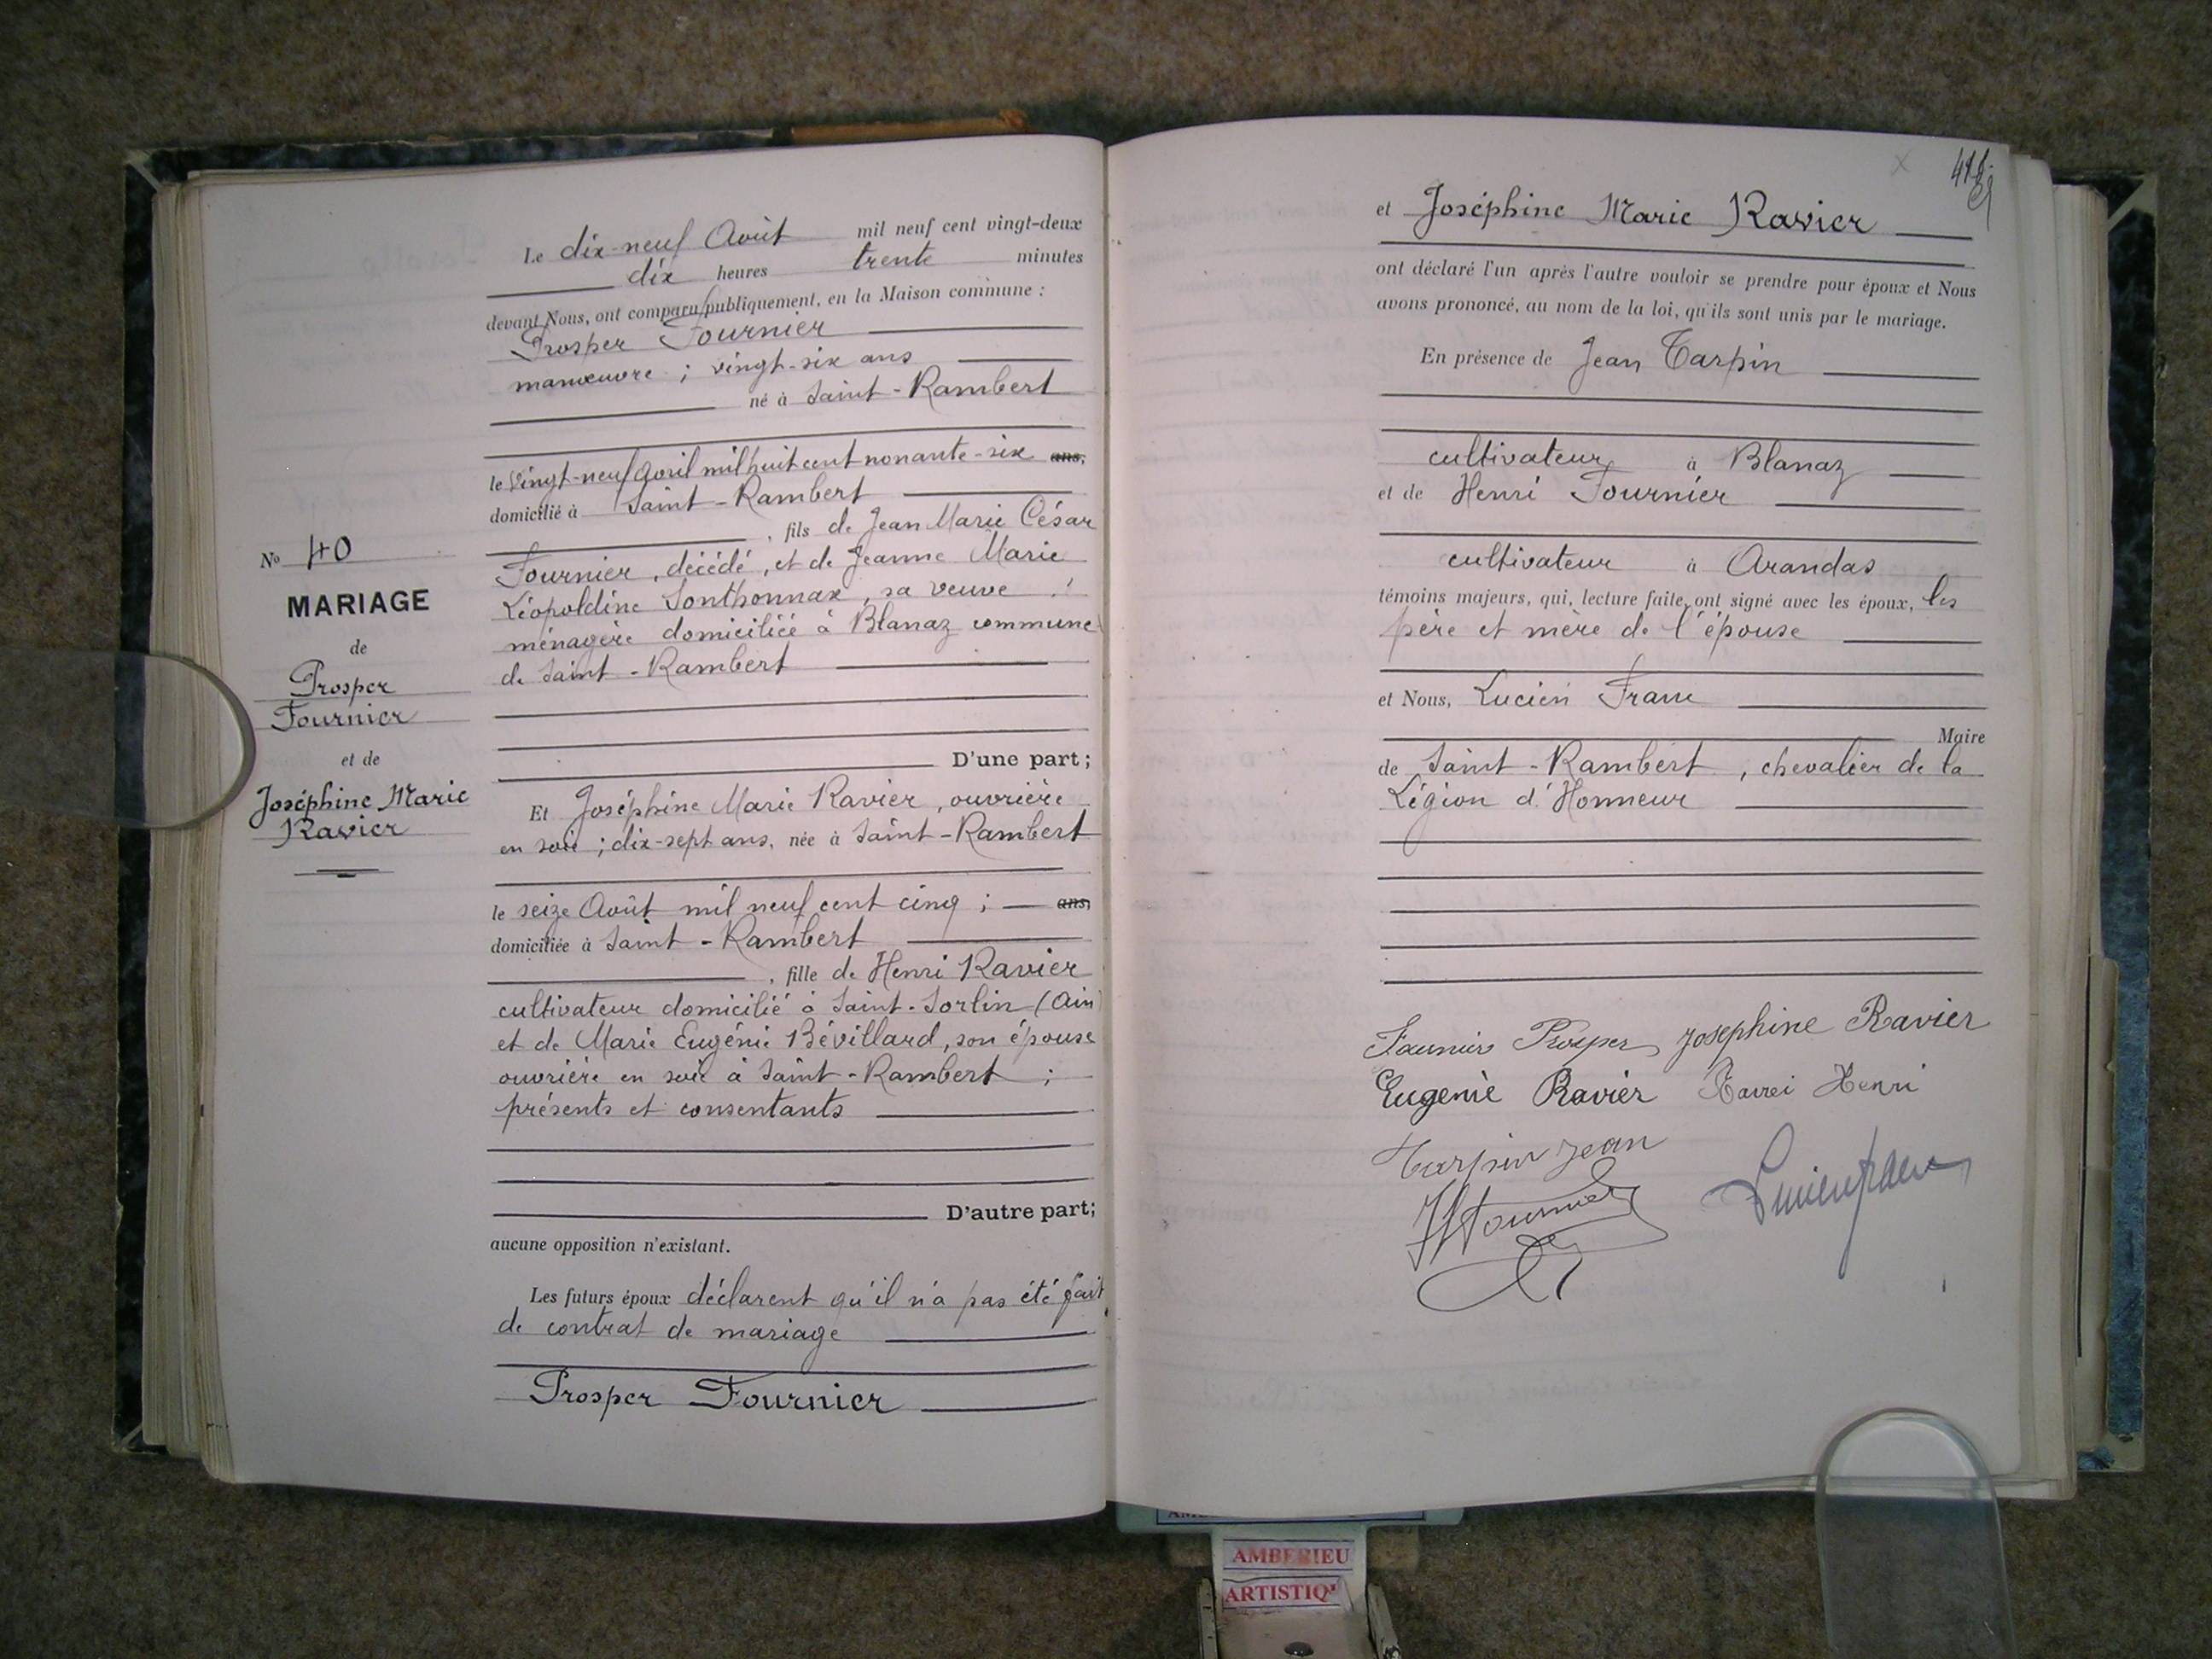 Le dix-neuf Août mil neuf cent vingt-deux
dix heures trente minutes
devant Nous, ont comparu publiquement, en la Maison commune :
Prosper Fournier
manœuvre ; vingt-six ans
né à Saint-Rambert
le vingt-neuf Avril mil huit cent nonante-six ans,
domicilié à Saint-Rambert
, fils de Jean Marie César
Fournier, décédé, et de Jeanne Marie
Léopoldine Sonthonnax, sa veuve
ménagère domiciliée à Blanaz commune
de Saint-Rambert
D'une part;
Et Joséphine Marie Ravier, ouvrière
en soie ; dix-sept ans, née à Saint-Rambert
le seize Août mil neuf cent cinq ; ans,
domiciliée à Saint-Rambert
, fille de Henri Ravier
cultivateur domicilié à Saint-Sorlin (Ain)
et de Marie Eugénie Bévillard, son épouse
ouvrière en soie à Saint-Rambert ;
présents et consentants
D'autre part;
aucune opposition n'existant.
Les futurs époux déclarent qu'il n'a pas été fait
de contrat de mariage
Prosper Fournier
No 40
MARIAGE
de
Prosper
Fournier
et de
Joséphine Marie
Ravier
et Joséphine Marie Ravier
ont déclaré l'un après l'autre vouloir se prendre pour époux et Nous
avons prononcé, au nom de la loi, qu'ils sont unis par le mariage.
En présence de Jean Tarpin
cultivateur à Blanaz
et de Henri Fournier
cultivateur à Arandas
témoins majeurs, qui, lecture faite, ont signé avec les époux, les
père et mère de l'épouse
et Nous, Lucien Franc
Maire
de Saint-Rambert, chevalier de la
Légion d'Honneur
Fournier Prosper Joséphine Ravier
Eugenie Ravier Henri
Tarpin Jean
HFournier
AMBERIEU
ARTISTIQ